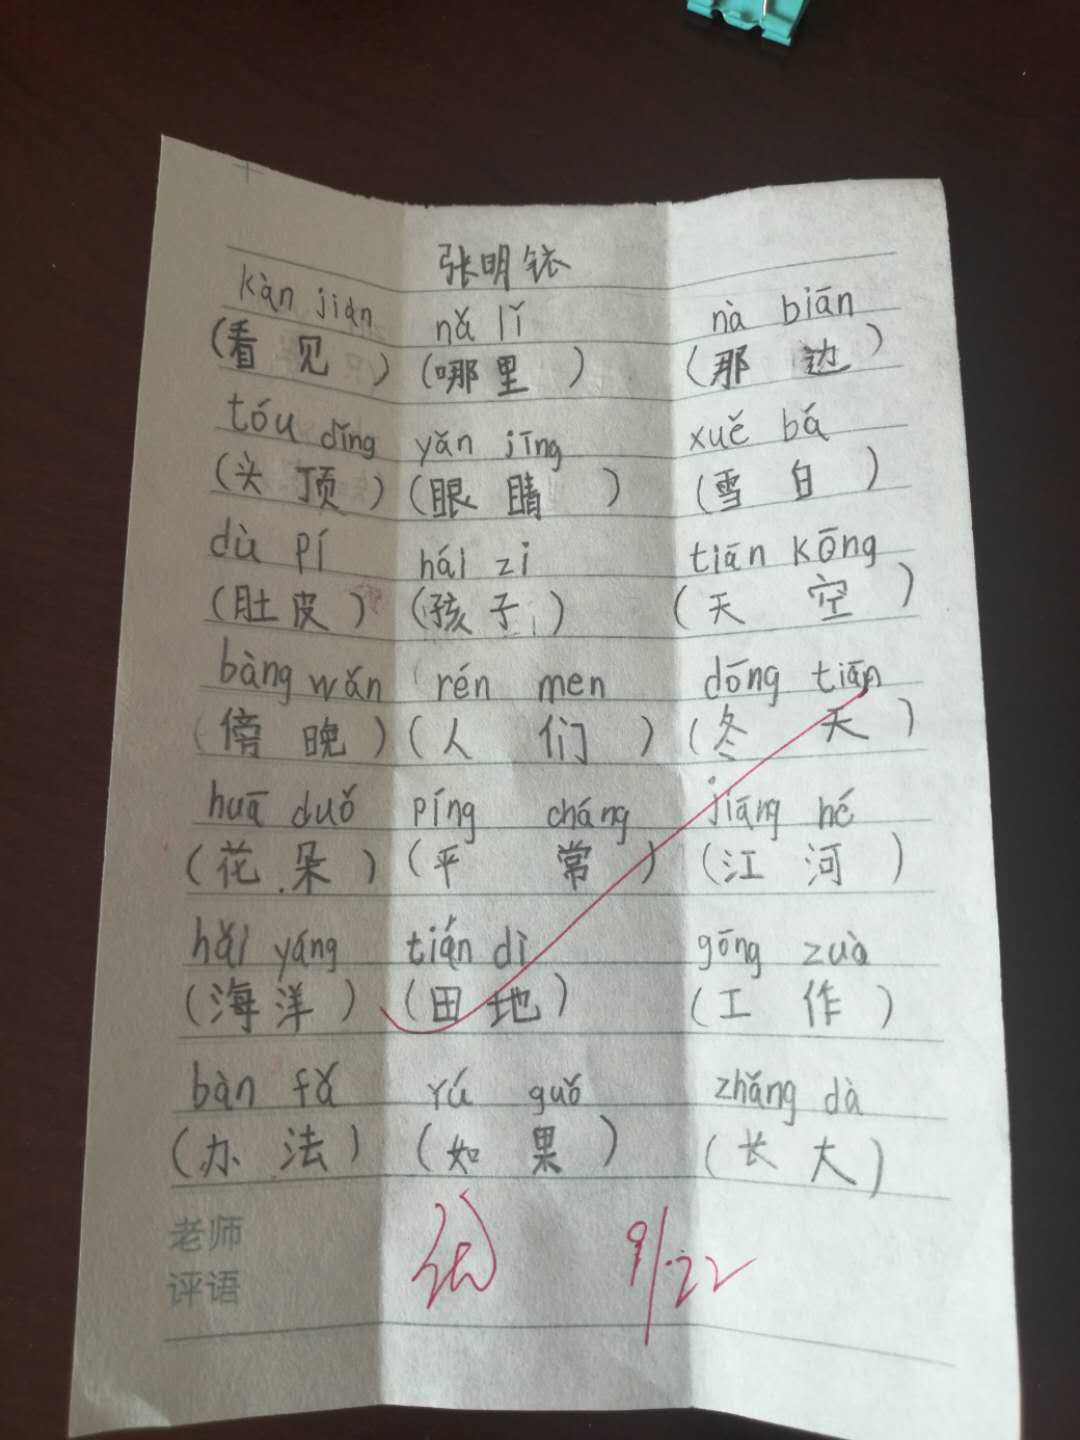 张明铱
kàn jiàn nǎ lǐ nà biān
(看见) (哪里) (那边)
tóu dǐng yǎn jīng xuě bá
(头顶) (眼睛) (雪白)
dù pí hái zi tiān kōng
(肚皮) (孩子) (天空)
bàng wǎn rén men dōng tiān
(傍晚) (人们) (冬天)
huā duǒ píng cháng jiāng hé
(花朵) (平常) (江河)
hǎi yáng tián dì gōng zuò
(海洋) (田地) (工作)
bàn fǎ rú guǒ zhǎng dà
(办法) (如果) (长大)
老师
评语
优 9/22